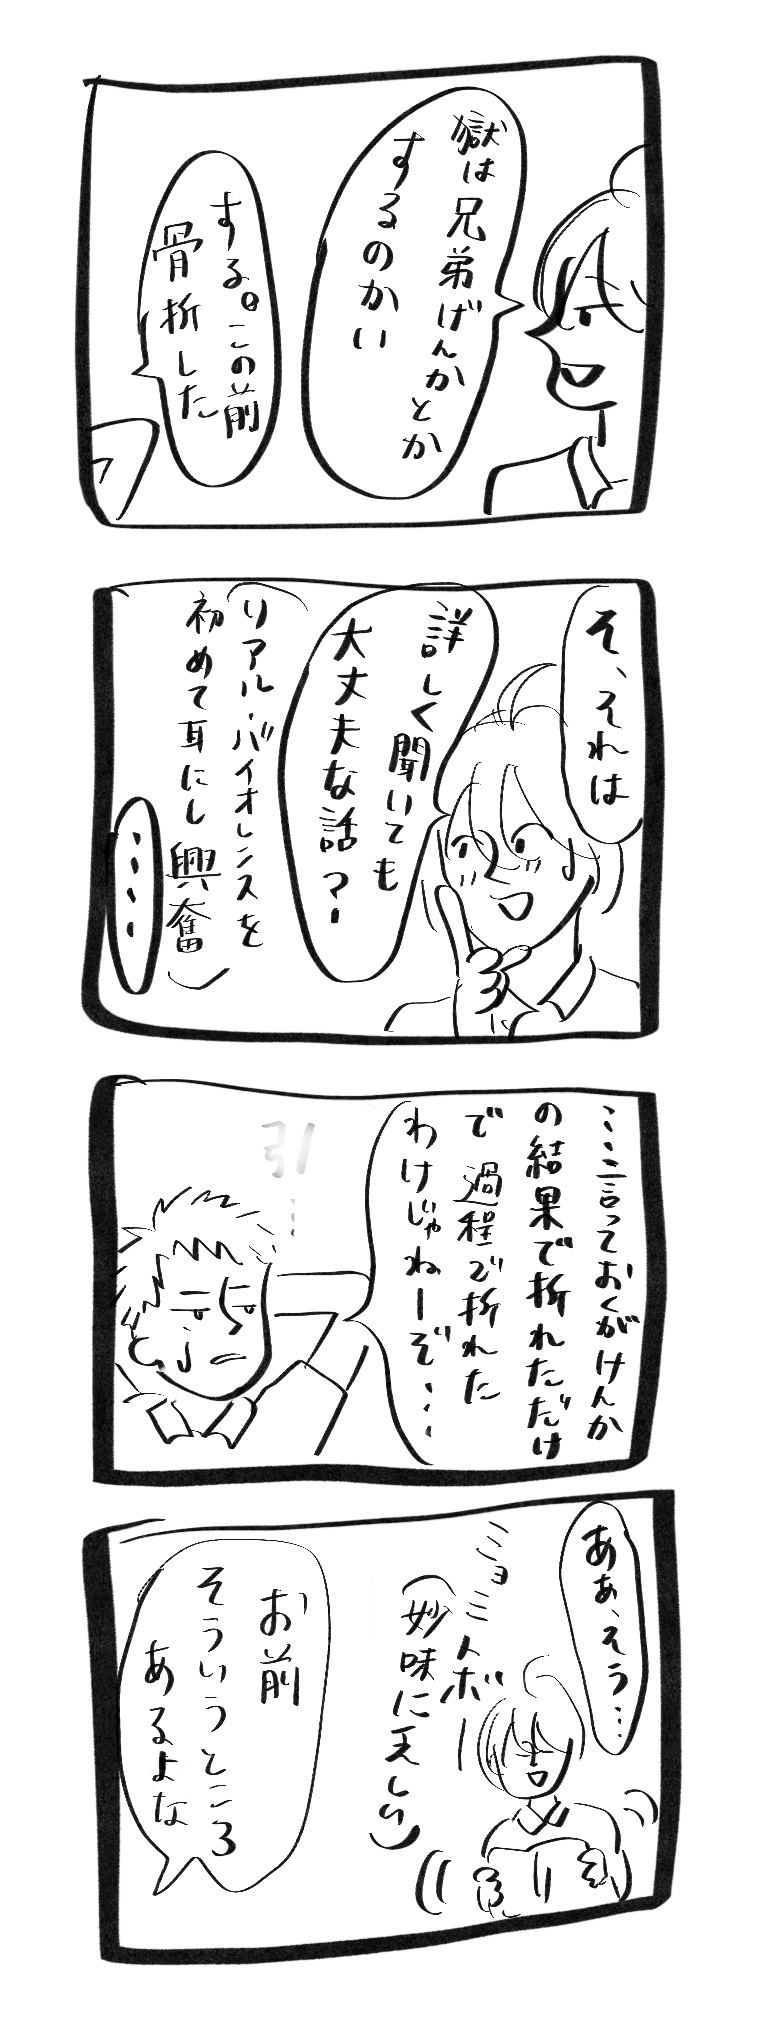 獄は兄弟げんかとか
するのかい
する。この前
骨折した
そ、それは
詳しく聞いても
大丈夫な話？
リアル・バイオレンスを
初めて耳にし興奮
・・・・
・・・言っておくがけんか
の結果で折れただけ
で過程で折れた
わけじゃねーぞ・・・
引…
ああ、そう…
ミョミトボー
（妙味に乏しい）
お前
そういうところ
あるよな